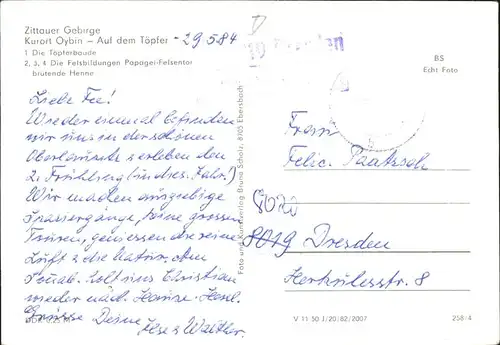 Zittauer Gebirge
Kurort Oybin – Auf dem Töpfer
-29.5.84
1 Die Töpferbaude
2, 3, 4 Die Felsbildungen Papagei-Felsentor
brütende Henne
BS
Echt Foto
Liebe Fee!
Wieder einmal befinden
wir uns in der schönen
Oberlausitz & erleben den
2. Frühling (in dies. Jahr!)
Wir machen ausgiebige
Spaziergänge, keine grossen
Touren, geniessen die reine
Luft & die Natur. Am
Sonab. holt uns Christian
wieder nach Hause. Herzl.
Grüsse Deine Ilse & Walther.
Foto und Kunstverlag Bruno Scholz, 8705 Ebersbach
Frau
Felic. Paatzsch
8020
8019 Dresden
Herkulesstr. 8
V 11 50 J/20/82/2007
258/4